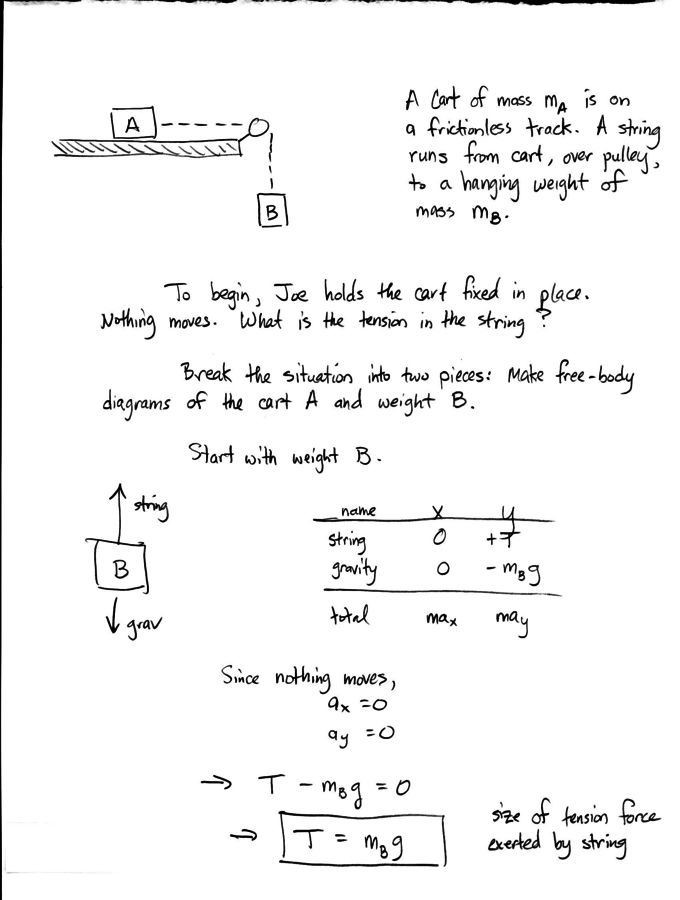 A cart of mass mA is on
a frictionless track. A string
runs from cart, over pulley,
to a hanging weight of
mass mB.
A
B
To begin, Joe holds the cart fixed in place.
Nothing moves. What is the tension in the string?
Break the situation into two pieces: Make free-body
diagrams of the cart A and weight B.
Start with weight B.
string
B
grav
name x y
string 0 +T
gravity 0 - mBg
total max may
Since nothing moves,
ax = 0
ay = 0
→ T - mBg = 0
→ T = mBg
size of tension force
exerted by string